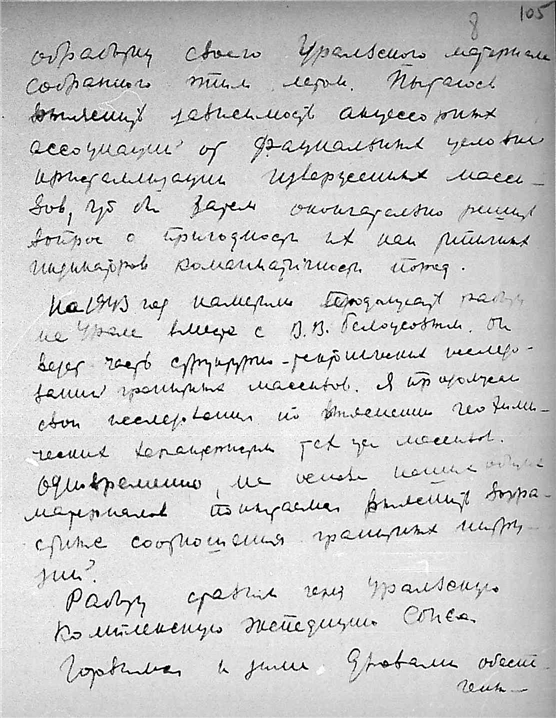 8 105
обработку своего Уральского материала
собранного этим летом. Пытаюсь
выяснить зависимость акцессорных
ассоциаций от фациальных условий
кристаллизации изверженных масси-
вов, чтобы затем окончательно решить
вопрос о пригодности их как
индикаторов комагматичности пород.
На 1943 год наметили продолжать работу
на Урале вместе с В.В. Белоусовым. Он
ведет часть структурно-тектонических исследо-
ваний гранитных массивов. Я продолжаю
свои исследования по выяснению геохими-
ческих характеристик тех же массивов.
Одновременно, на основе наших общих
материалов попытаемся выяснить возра-
стные соотношения гранитных интру-
зий.
Работу ставим через Уральскую
Комплексную экспедицию СОПСа
Готовимся к зиме. Дровами обеспе-
чены